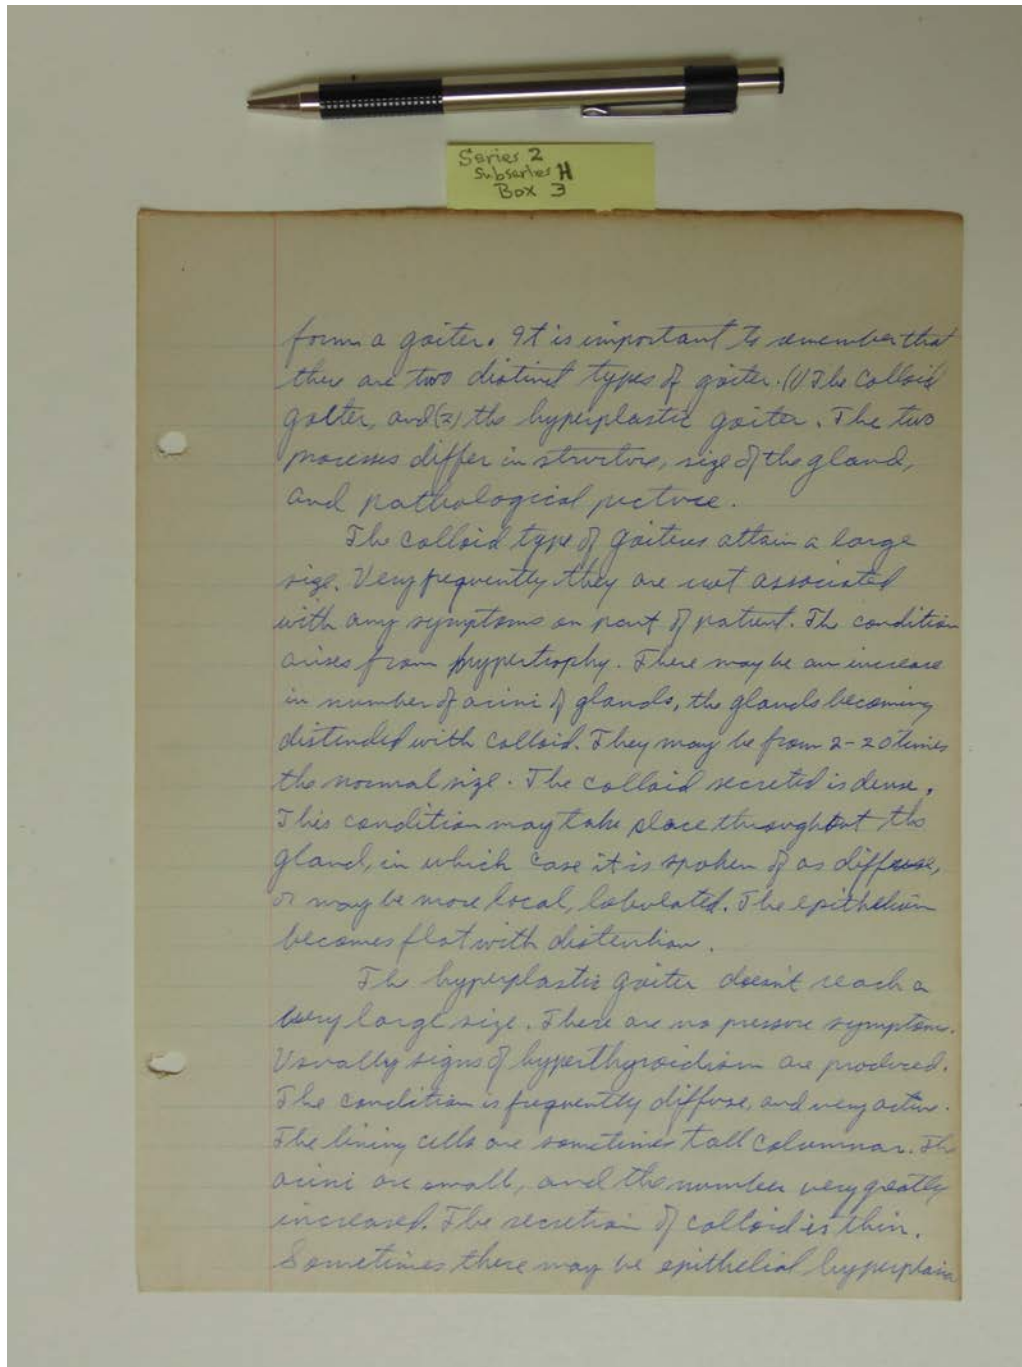 Series 2
Subseries H
Box 3
form a goiter. It is important to remember that
there are two distinct types of goiter. (1) The Colloid
goiter, and (2) the hyperplastic goiter. The two
processes differ in structure, size of the gland,
and pathological picture.
The colloid type of goiters attain a large
size. Very frequently they are not associated
with any symptoms on part of patient. The condition
arises from hypertrophy. There may be an increase
in number of acini of glands, the glands becoming
distended with colloid. They may be from 2-20 times
the normal size. The colloid secreted is dense.
This condition may take place throughout the
gland, in which case it is spoken of as diffuse,
or may be more local, lobulated. The epithelium
becomes flat with distention.
The hyperplastic goiter doesn't reach a
very large size. There are no pressure symptoms.
Usually signs of hyperthyroidism are produced.
The condition is frequently diffuse, and very active.
The lining cells are sometimes tall columnar. The
acini are small, and the number very greatly
increased. The secretion of colloid is thin.
Sometimes there may be epithelial hyperplasia